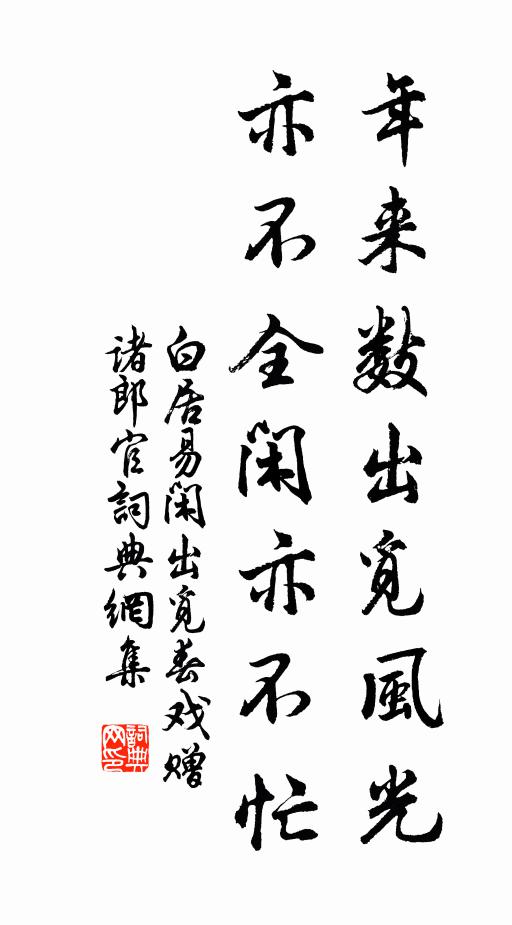 年来数出覓風光
亦不全閑亦不忙
白居易閑出覓春戏赠
诸郎官詞典網集
詞典
网印